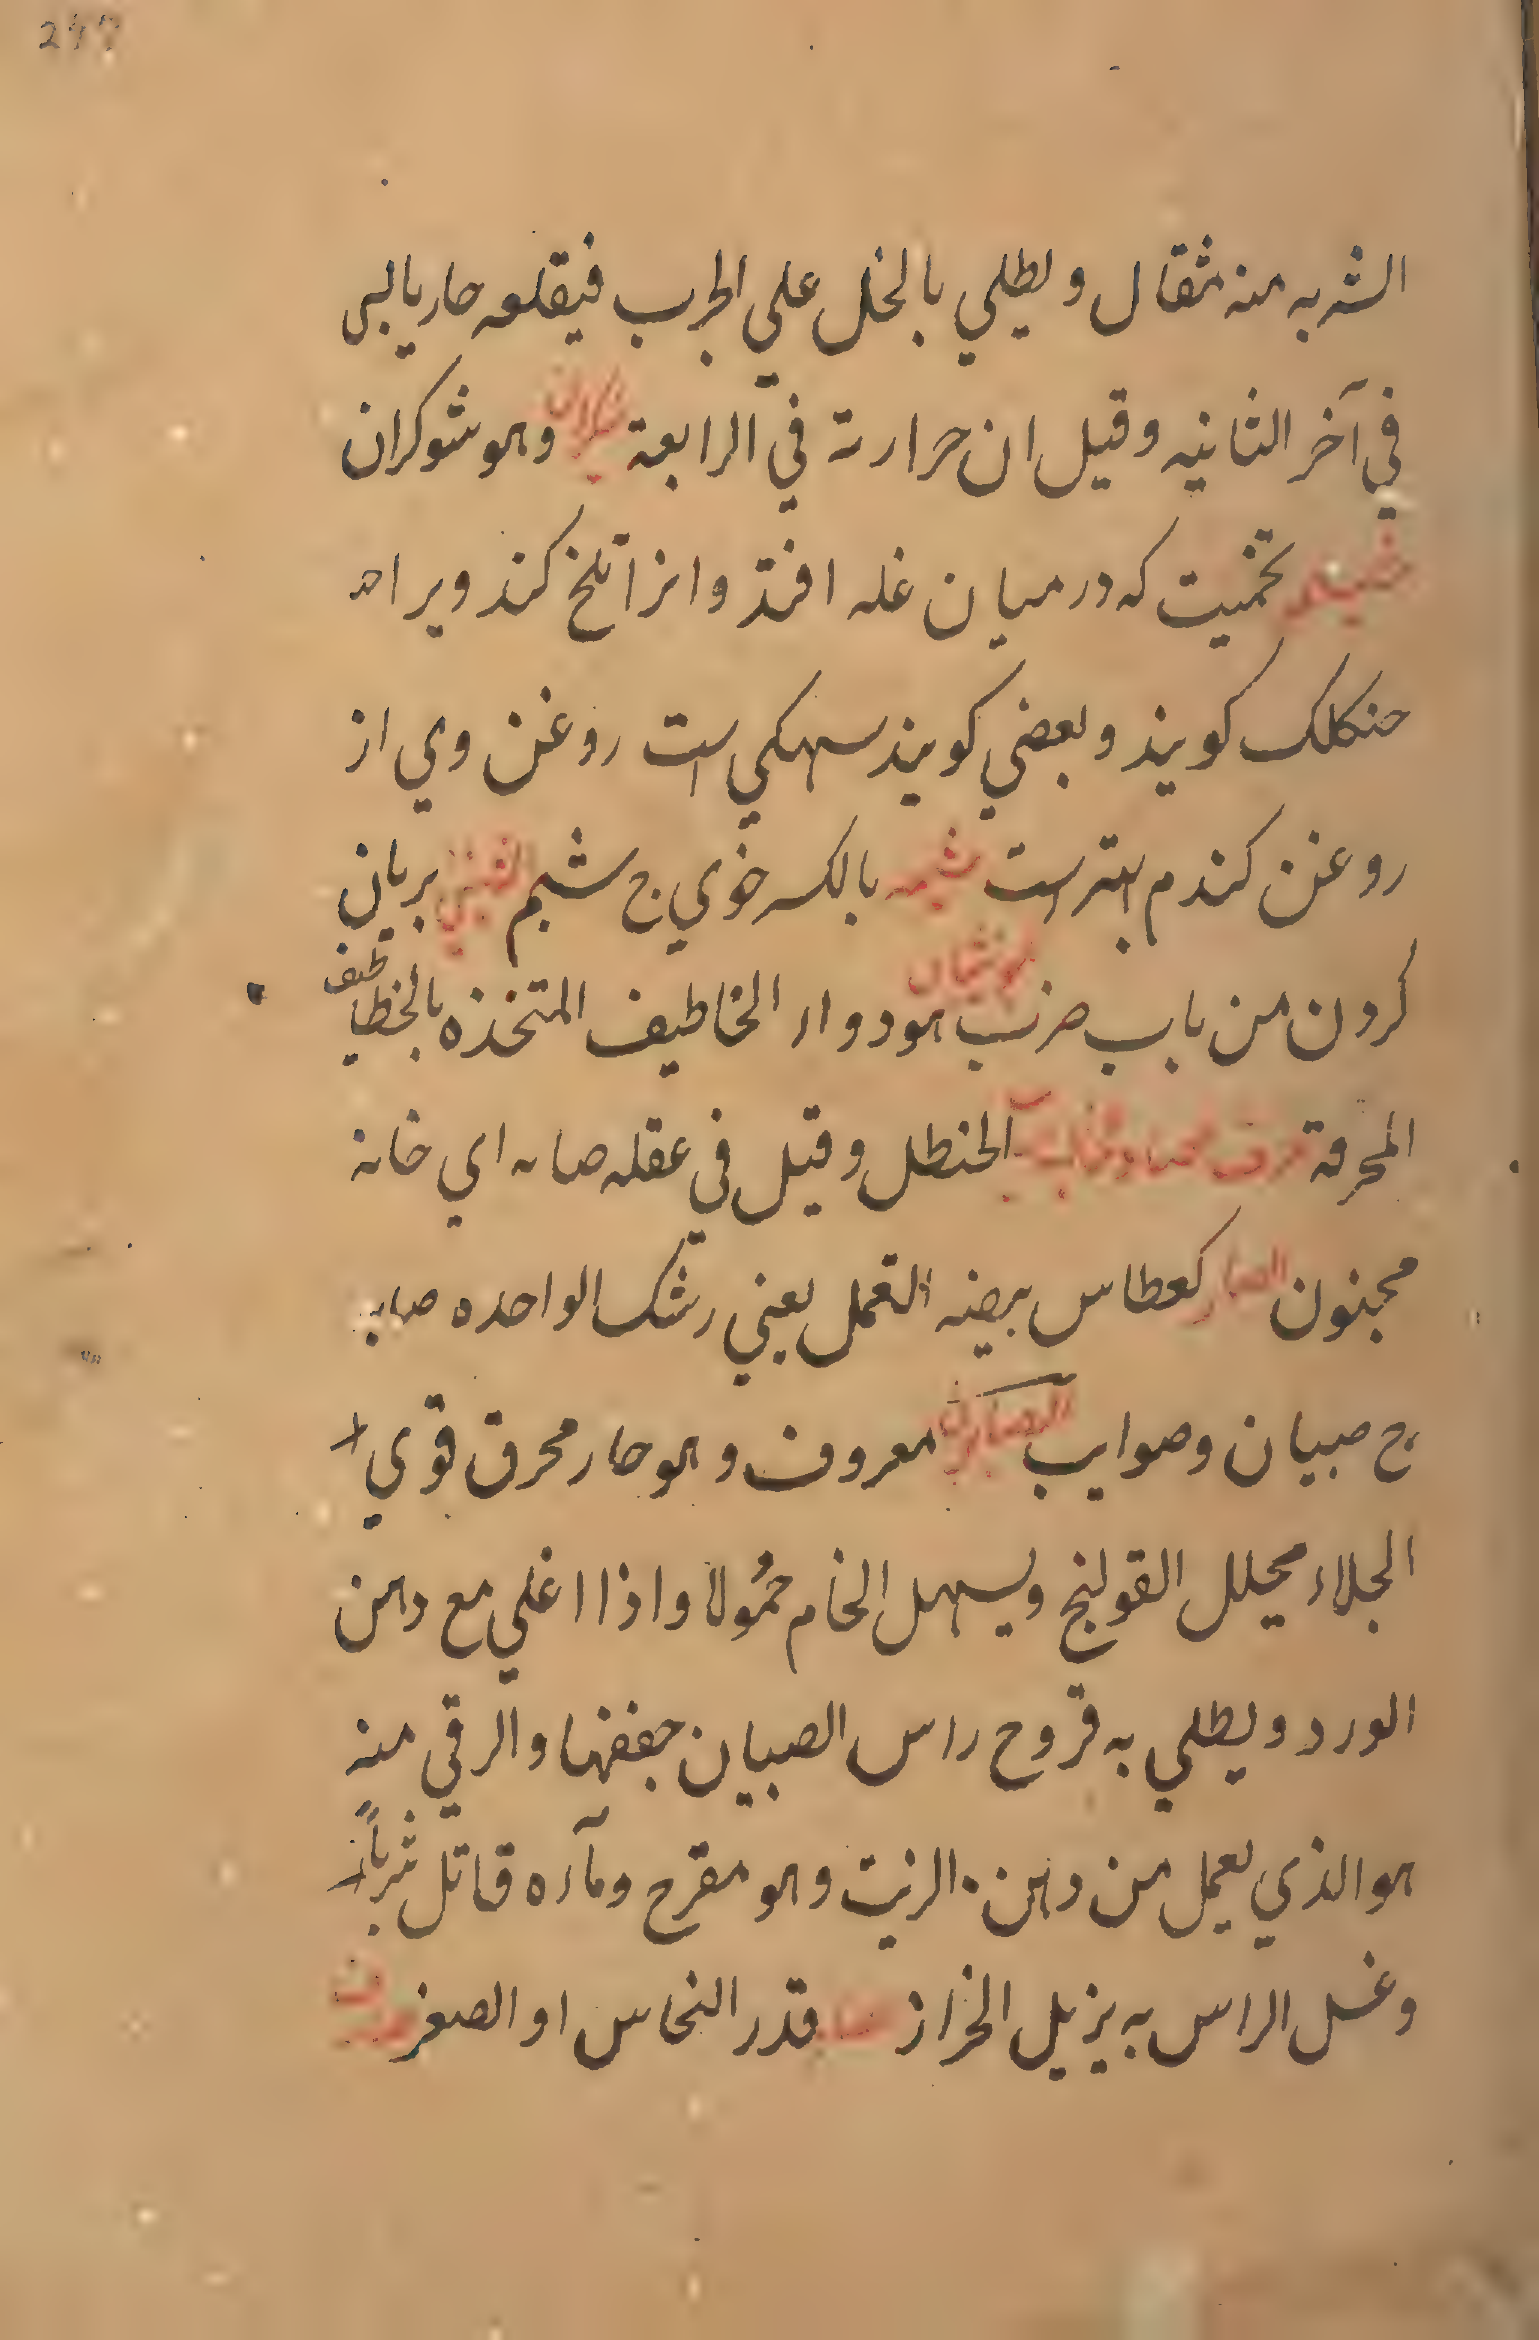 الشربه منه مثقال ويطلي بالخل علي الجرب فيقلعه حار يابس
في آخر الثانيه وقيل ان حرارته في الرابعة شكران وهو شوكران
تخميت كه در ميان غله افتد وانرا تلخ كند ويرا
حنكلك كويند وبعضي كويند سهكي است روغن وي از
روغن كندم بهتر است شيمه بالكسر خوي ج شيم بريان
كردن من باب ضرب هو دواء الخاطيف المتخذه بالخطاطيف
المحرقة الحنطل وقيل في عقله صابه اي خانه
مجنون كعطاس بيضه القمل يعني رشك الواحده صابه
ج صبيان وصوايب الصابون معروف وهو حار محرق قوي
الجلاء محلل القولنج ويسهل الخام حمُولا واذا اغلي مع دهن
الورد ويطلي به قروح راس الصبيان جففها والرقي منه
هو الذي يعمل من دهن الزيت وهو مقرح ومآءه قاتل شرباً
وغسل الراس به يزيل الحزاز قدر النحاس او الصفر